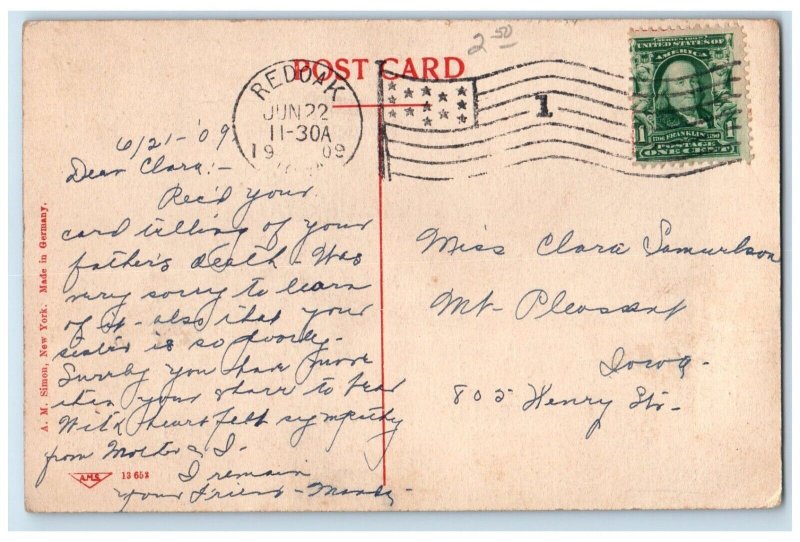 POST CARD
2 50
RED OAK
JUN 22
11-30A
1909
IOWA
1
SERIES 1902
UNITED STATES OF
AMERICA
1706 FRANKLIN 1790
1 1
POSTAGE
ONE CENT
6/21-'09
Dear Clara:-
Rec'd your
card telling of your
father's death - Was
very sorry to learn
of it - also that your
sister is so poorly -
Surely you have more
than your share to bear
With heartfelt sympathy
from Mother & I.
I remain
your Friend -
Miss Clara Samuelson
Mt. Pleasant
Iowa.
805 Henry St.
A. M. Simon, New York. Made in Germany.
A.M.S.
13652